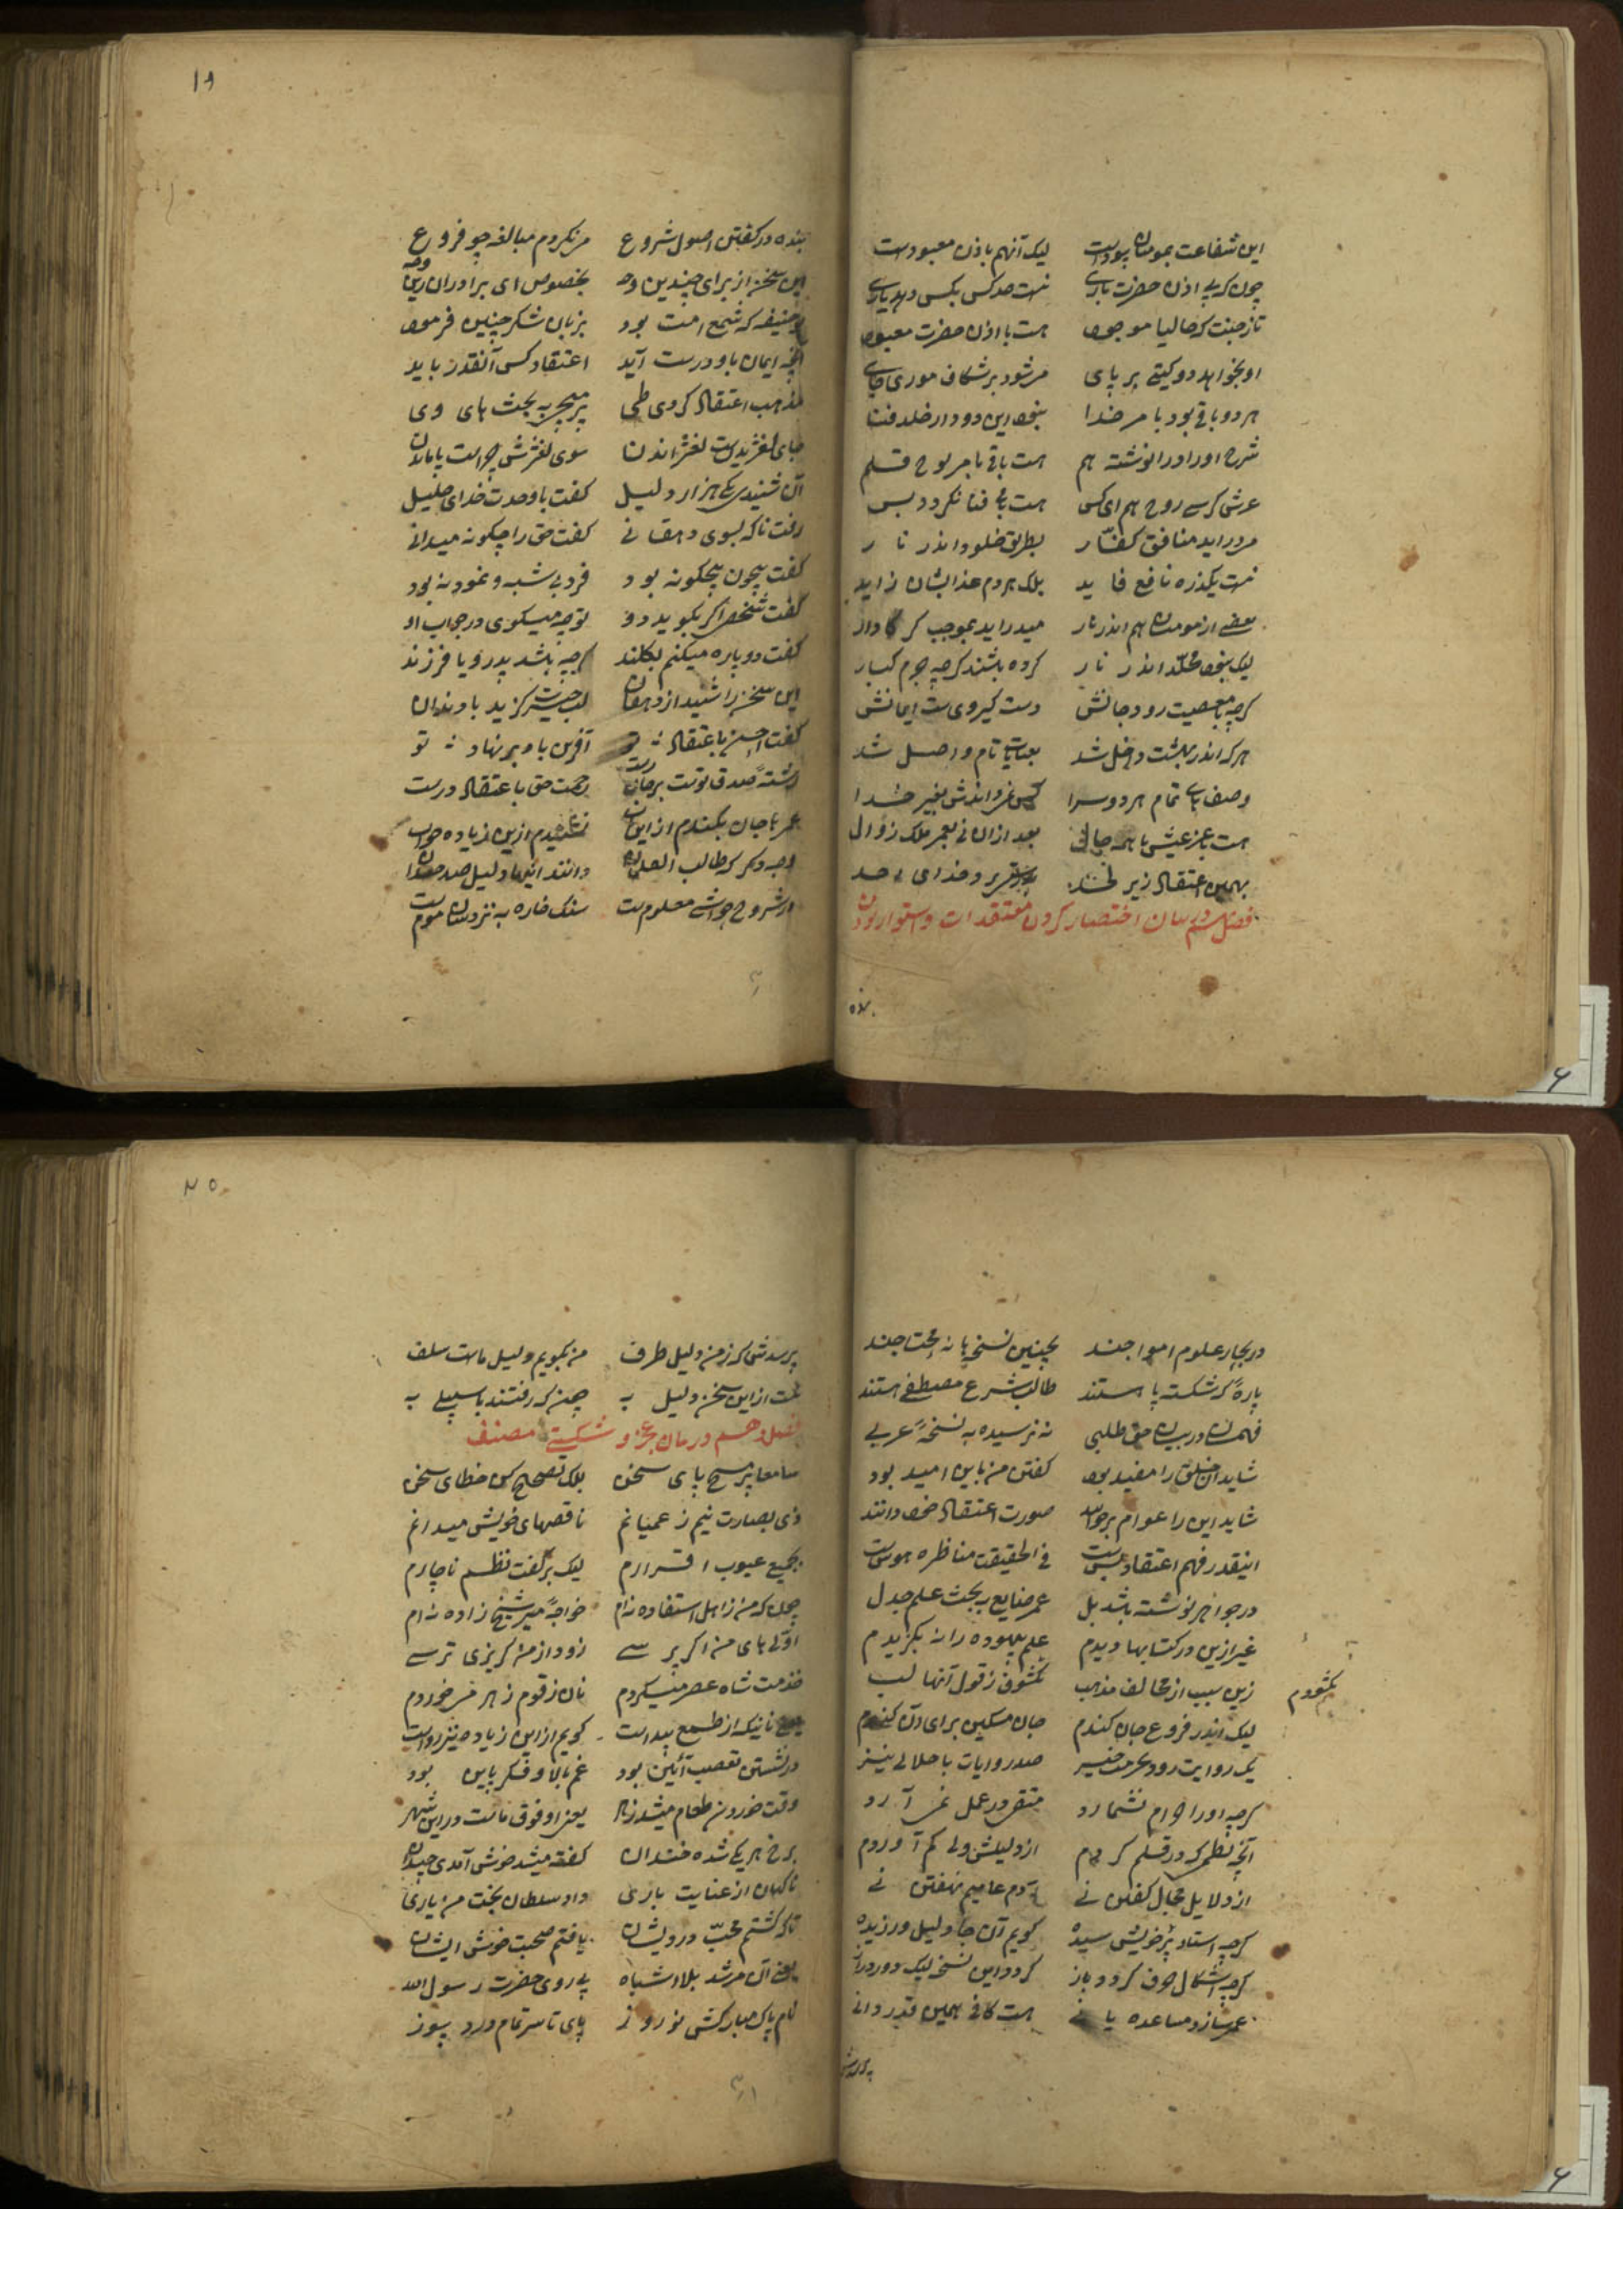 این شفاعت بمومنان بودست لیک آنهم باذن معبودست
چون کریی اذن حضرت باری نیست صد کس بکس دهد یاری
تاز جنت که حالیا موجود هست با اذن حضرت معبود
او بخواهد دو کیتی بر پای مرشود بر شکاف موری جای
هر دو باقی بود بامر خدا نبود این دو دار خلد فنا
شرح او را در او نوشته هم هست باقی بامر لوح قلم
عرش کرسی روح هم ای کس هست بی فنا نکردد بس
مر در آید منافق کفار بطریق خلود اندر نار
نیست یکذره نافع فاید بلک هر دم عذابشان زاید
بعضی از مومنان هم اندر نار میدر آید بموجب کردار
لیک نبود مخلد اندر نار کرده باشند کرچه جرم کبار
کرچه با معصیت رود جانش دست کیروی ست ایمانش
هر که اندر بهشت داخل شد بعنایت تام واصل شد
وصف های تمام هر دو سرا کس نمرداندش بغیر خدا
هست بعز عیش با همه حال بعد ازان نی بعمر ملک زوال
بهمین اعتقاد زیر لحد و خدای احد
فصل در بیان اختصار کردن معتقدات و استوار بودن
بنده
۱۹
بنده در کفتن اصول شروع من نکردم مبالغه چو فروع
این سخن از برای چندین وجه بخصوص ای برادران زین وجه
بوحنیفه که شمع امت بود بزبان شکر چنین فرمود
آنچه ایمان باو درست آید اعتقاد کس آنقدر باید
مذهب اعتقاد کردی طی پر مپیچ به بحث های وی
جای لغزیدنست لغزاندن سوی لغزش چراست پا ماندن
آن شنیدی یکی هزار دلیل کفت با وحدت خدای جلیل
رفت ناکه بسوی دهقانی کفت حق را چکونه میدانی
کفت بیچون بیچکونه بود فرد بی شبه و نمونه بود
کفت شخصی اکر بکوید دو تو چه میکوی در جواب او
کفت دو پاره میکنم بکلند کرچه باشد پدر و یا فرزند
این سخن را شنید از دهقان لب حیرت کزید با دندان
کفت احسن باعتقاد تو آفرین باد بر نهاد تو
رشته صدق توست بر جان رست رحمت حق باعتقاد درست
عمر با جان بکندم از این نشنیدم ازین زیاده جواب
وجه دیکر که طالب العلمان دانند اینها دلیل صد چندان
در شروح حواشی معلومست سنک خاره به نزدشان مومست
در بحار علوم امواجند بچنین نسخها نه محتاجند
پاره کر شکسته پا هستند طالب شرع مصطفی هستند
فهمشان در بیان حق طلبی نه نرسیده به نسخه عربی
شاید آن خلق را مفید بود کفتن من باین امید بود
شاید این را عوام بر خوانند صورت اعتقاد خود دانند
اینقدر فهم اعتقاد بس ست فی الحقیقت مناظره هوس ست
در جواهر نوشته باشد بل عمر ضایع به بحث علم جدل
غیر ازین در کتابها دیدم علم بیهوده را نه بکزیدم
زین سبب از مخالف مذهب نکشودم ز قول آنها لب
نکشودم
لیک اندر فروع جان کندم جان مسکین برای آن کندم
یک روایت رود بحرمت چیز صد روایات با حلالی نیز
کرچه او را حرام نشمارد متقی در عمل نمی آرد
آنچه نظم کر در قلم کردم از دلیلش ولی کم آوردم
از دلایل مجال کفتن نی آدم عامیم نهفتن نی
کرچه استاد پر خویش سیده کویم آن جا دلیل ورزیده
کرچه اشکال حرف کردد باز کردد این نسخه لیک دور و دراز
عمر سازد مساعده یا نی هست کافی همین قدر دانی
پرسدش
۲۰
پرسدش کر ز من دلیل طرف من بکویم دلیل ماست سلف
نیست از این سخن دلیل به چمن که رفتند با سبیلی به
فصل دهم در بیان عجز و شکستی مصنف
سامعا پر مپیچ پای سخن بلک تصحیح کن خطای سخن
ذی بصارت نیم ز عمیانم ناقصهای خویش میدانم
بجمیع عیوب اقرارم لیک بر کفت نظم ناچارم
چون که من ز اهل استفاده نه ام خواجه میر شیخ زاده نه ام
اولهای من اکر پرسی زود از من کریزی ترسی
خدمت شاه عصر میکردم نان زقوم زهر میخوردم
یعنی نانیکه از طمع پیداست کویم از این زیاده نیز رواست
در نشستن تعصب آئین بود غم بالا و فکر پایین بود
وقت خوردن طعام میشد زهر یعنی او فوق ماست در این شهر
بر رخ هر یکی شده خندان کفته میشد خوش آمدی چندان
ناکهان از عنایت باری داد سلطان بخت من یاری
تا که کشتم محب درویشان یافتم صحبت خوش ایشان
یعنی آن مرشد بلا اشباه پی روی حضرت رسول الله
نام پاک مبارکش نوروز پای تا سر تمام درد بسوز